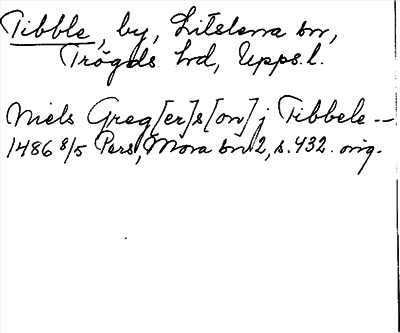 Tibble, by, Litslena sn,
Trögds hd, Upps.l.
Niels Greg[er]s[on] j Tibbele --
1486 8/5 Pers, Mora sn 2, s. 432. orig.